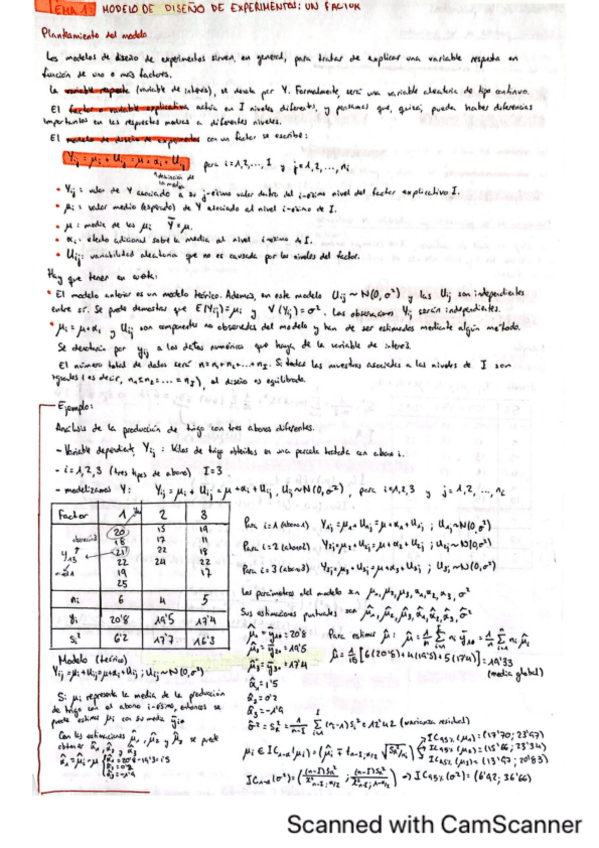 TEMA 1: MODELO DE DISEÑO DE EXPERIMENTOS: UN FACTOR
Planteamiento del modelo
Los modelos de diseño de experimentos sirven, en general, para tratar de explicar una variable respuesta en
función de uno o más factores.
La variable respuesta (variable de interés), se denota por Y. Formalmente, será una variable aleatoria de tipo continuo.
El factor o variable explicativa actúa en I niveles diferentes, y pensamos que, quizá, pueda haber diferencias
importantes en las respuestas medias a diferentes niveles.
El modelo de diseño de experimentos con un factor se escribe:
Yij = μi + Uij = μ + αi + Uij para i=1,2,..., I y j=1,2,..., ni
desviación de la media
• Yij: valor de Y asociado a su j-ésimo valor dentro del i-ésimo nivel del factor explicativo I.
• μi: valor medio (esperado) de Y asociado al nivel i-ésimo de I.
• μ: media de las μi Ȳ=μ.
• αi: efecto adicional sobre la media al nivel i-ésimo de I.
• Uij: variabilidad aleatoria que no es causada por los niveles del factor.
Hay que tener en cuenta:
• El modelo anterior es un modelo teórico. Además, en este modelo Uij ~ N(0,σ²) y las Uij son independientes
entre sí. Se puede demostrar que E(Yij)=μi y V(Yij)=σ². Las observaciones Yij serán independientes.
• μi = μ+αi y Uij son componentes no observadas del modelo y han de ser estimados mediante algún método.
Se denotarán por yij a los datos numéricos que haya de la variable de interés.
El número total de datos será n=n1+n2+...+nI. Si todas las muestras asociadas a los niveles de I son
iguales (es decir, n1=n2=...=nI), el diseño es equilibrado.
Ejemplo:
Análisis de la producción de trigo con tres abonos diferentes.
- Variable dependiente, Yij: kilos de trigo obtenidos en una parcela tratada con abono i.
- i=1,2,3 (tres tipos de abono) I=3
- modelizamos Y: Yij = μi + Uij = μ+αi+Uij, Uij~N(0,σ²), para i=1,2,3 y j=1,2,..., ni
Factor 1 2 3
20 15 19
18 17 11
21 22 18
22 24 22
19 17
25
ni 6 4 5
ȳi 20'8 19'5 17'4
Si² 6'2 17'7 16'3
Para i=1 (abono1) Y1j=μ1+U1j=μ+α1+U1j ; U1j~N(0,σ²)
Para i=2 (abono2) Y2j=μ2+U2j=μ+α2+U2j ; U2j~N(0,σ²)
Para i=3 (abono3) Y3j=μ3+U3j=μ+α3+U3j ; U3j~N(0,σ²)
Los parámetros del modelo son μ1,μ2,μ3,α1,α2,α3,σ²
Sus estimaciones puntuales son μ̂1,μ̂2,μ̂3,α̂1,α̂2,α̂3,σ̂²
μ̂1 = ȳ1• = 20'8
μ̂2 = ȳ2• = 19'5
μ̂3 = ȳ3• = 17'4
α̂1 = 1'5
α̂2 = 0'2
α̂3 = -1'9
μ̂ = 1/15 [6(20'8)+4(19'5)+5(17'4)] = 19'33
(media global)
σ̂² = SR² = 1/(n-I) Σ (ni-1)Si² = 12'42 (varianza residual)
Modelo (teórico)
Yij=μi+Uij=μ+αi+Uij ; Uij~N(0,σ²)
Si μi representa la media de la producción
de trigo con el abono i-ésimo, entonces se
puede estimar μi con su media ȳi•
Con las estimaciones μ̂1, μ̂2 y μ̂3 se puede
obtener α̂1, α̂2 y α̂3
IC95%(μ1)=(17'70; 23'97)
IC95%(μ2)=(15'66; 23'34)
IC95%(μ3)=(13'97; 20'83)
IC95%(σ²)=(6'42; 36'66)
Scanned with CamScanner